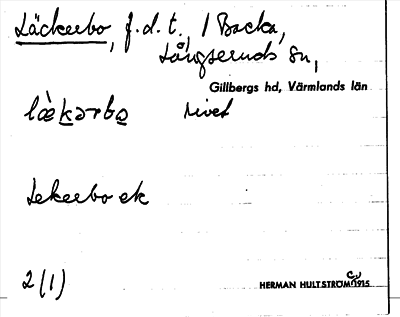 Läckerbo, f.d.t., / Backa,
Långseruds sn,
Gillbergs hd, Värmlands län
læ̀kərbo rivet
Lekerbo ek
2(1)
HERMAN HULTSTRÖM 1915